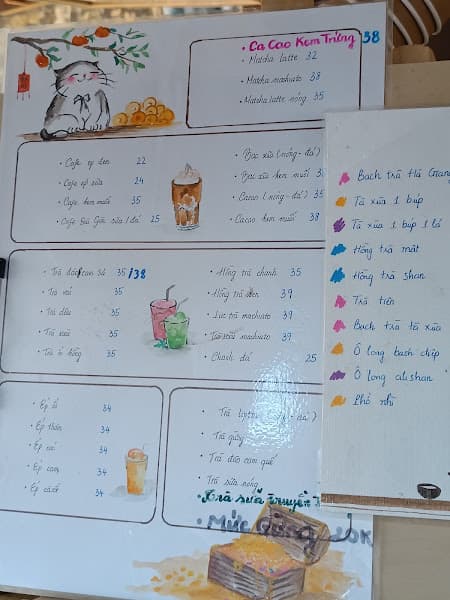 • Ca Cao Kem Trứng 38
• Matcha latte 32
• Matcha machiato 38
• Matcha latte nóng 35
• Cafe ép đen 22
• Cafe ép sữa 24
• Cafe kem muối 35
• Cafe Sài Gòn sữa/đá 25
• Bạc xỉu (nóng - đá)
• Bạc xỉu kem muối 3
• Cacao (nóng - đá) 35
• Cacao kem muối 38
• Trà đào cam sả 35/38
• Trà vải 35
• Trà dâu 35
• Trà 35
• Trà ổi hồng 35
• Hồng trà chanh 35
• Hồng trà kem 39
• Lục trà machiato 39
• Trà sữa machiato 39
• Chanh đá 25
• Ép ổi 34
• Ép thơm 34
• Ép 34
• Ép cam 34
• Ép 34
• Trà lipton
• Trà gừng
• Trà đào cam quế
• Trà sữa nóng
• Trà sữa truyền
• Mực 20K
Bạch trà Hà Giang
Tà xùa 1 búp
Tà xùa 1 búp 1 lá
Hồng trà mật
Hồng trà shan
Trà tiên
Bạch trà tà xùa
Ô long bạch chấp
Ô long alishan
Phổ nhĩ